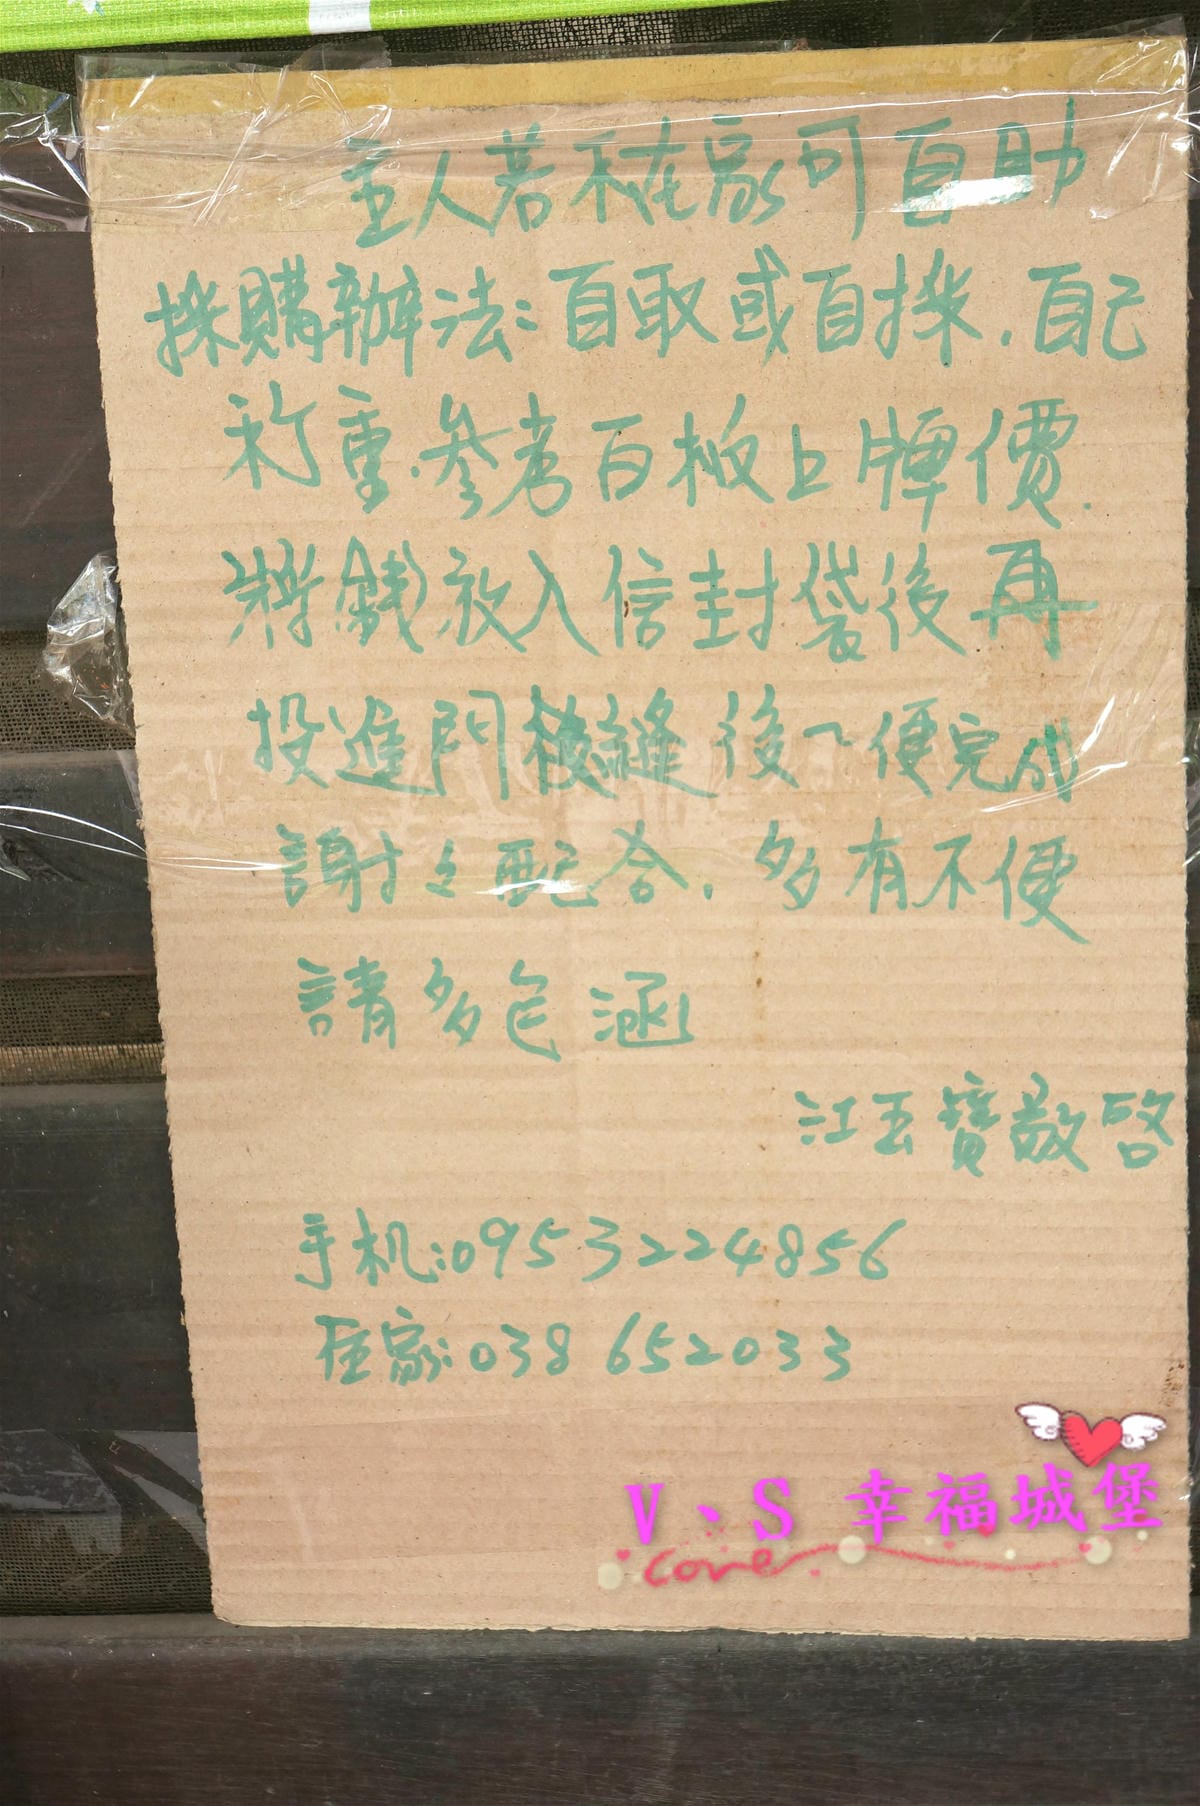 主人若不在家可自助
採購辦法:自取或自採.自己
秤重.參考白板上牌價.
將錢放入信封袋後再
投進門樓縫後~便完成
謝謝配合.多有不便
請多包涵
江玉寶敬啓
手机:0953224856
住家:038652033
V、S 幸福城堡
Love